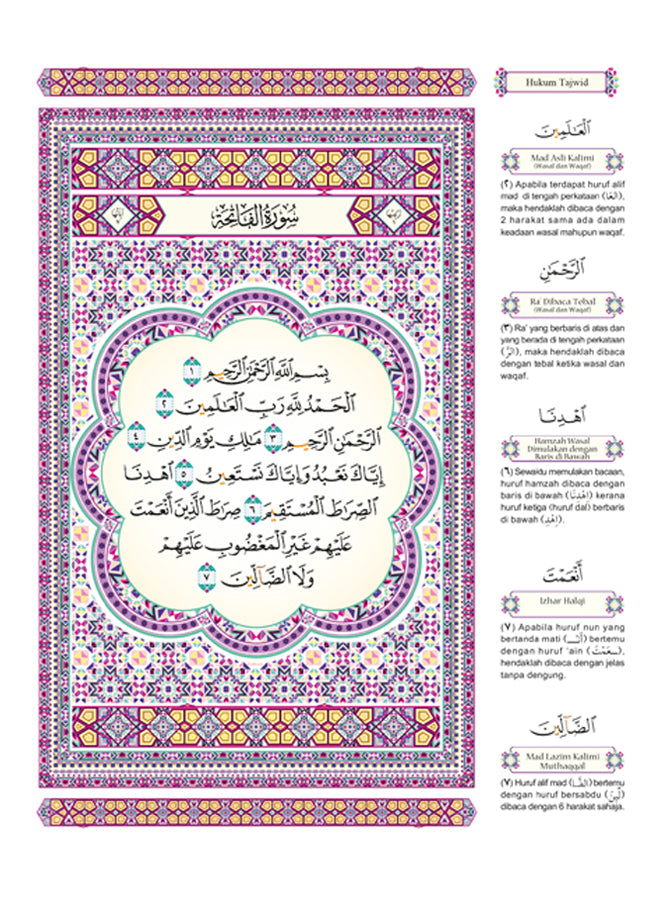 سُورَةُ الْفَاتِحَةِ
بِسْمِ اللَّهِ الرَّحْمَٰنِ الرَّحِيمِ ١
الْحَمْدُ لِلَّهِ رَبِّ الْعَالَمِينَ ٢
الرَّحْمَٰنِ الرَّحِيمِ ٣ مَالِكِ يَوْمِ الدِّينِ ٤
إِيَّاكَ نَعْبُدُ وَإِيَّاكَ نَسْتَعِينُ ٥ اهْدِنَا
الصِّرَاطَ الْمُسْتَقِيمَ ٦ صِرَاطَ الَّذِينَ أَنْعَمْتَ
عَلَيْهِمْ غَيْرِ الْمَغْضُوبِ عَلَيْهِمْ
وَلَا الضَّالِّينَ ٧
Hukum Tajwid
الْعَالَمِينَ
Mad Asli Kalimi
(Wasal dan Waqaf)
(٢) Apabila terdapat huruf alif
mad di tengah perkataan (الْعَا),
maka hendaklah dibaca dengan
2 harakat sama ada dalam
keadaan wasal mahupun waqaf.
الرَّحْمَٰنِ
Ra' Dibaca Tebal
(Wasal dan Waqaf)
(٣) Ra' yang berbaris di atas dan
yang berada di tengah perkataan
(الرَّ), maka hendaklah dibaca
dengan tebal ketika wasal dan
waqaf.
اهْدِنَا
Hamzah Wasal
Dimulakan dengan
Baris di Bawah
(٦) Sewaktu memulakan bacaan,
huruf hamzah dibaca dengan
baris di bawah (اِهْدِنَا) kerana
huruf ketiga (huruf dal) berbaris
di bawah (اِهْدِ).
أَنْعَمْتَ
Izhar Halqi
(٧) Apabila huruf nun yang
bertanda mati (أَنْـ) bertemu
dengan huruf 'ain (ـعَمْتَ),
hendaklah dibaca dengan jelas
tanpa dengung.
الضَّالِّينَ
Mad Lazim Kalimi
Muthaqqal
(٧) Huruf alif mad (الضَّا) bertemu
dengan huruf bersabdu (لِّينَ)
dibaca dengan 6 harakat sahaja.